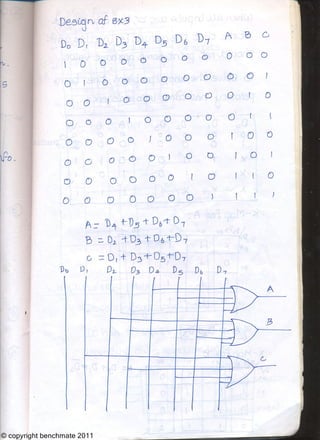 Design of 8x3
D0 D1 D2 D3 D4 D5 D6 D7 A B C
1 0 0 0 0 0 0 0 0 0 0
0 1 0 0 0 0 0 0 0 0 1
0 0 1 0 0 0 0 0 0 1 0
0 0 0 1 0 0 0 0 0 1 1
0 0 0 0 1 0 0 0 1 0 0
0 0 0 0 0 1 0 0 1 0 1
0 0 0 0 0 0 1 0 1 1 0
0 0 0 0 0 0 0 1 1 1 1
A = D4 + D5 + D6 + D7
B = D2 + D3 + D6 + D7
C = D1 + D3 + D5 + D7
D0 D1 D2 D3 D4 D5 D6 D7
A
B
C
© copyright benchmate 2011